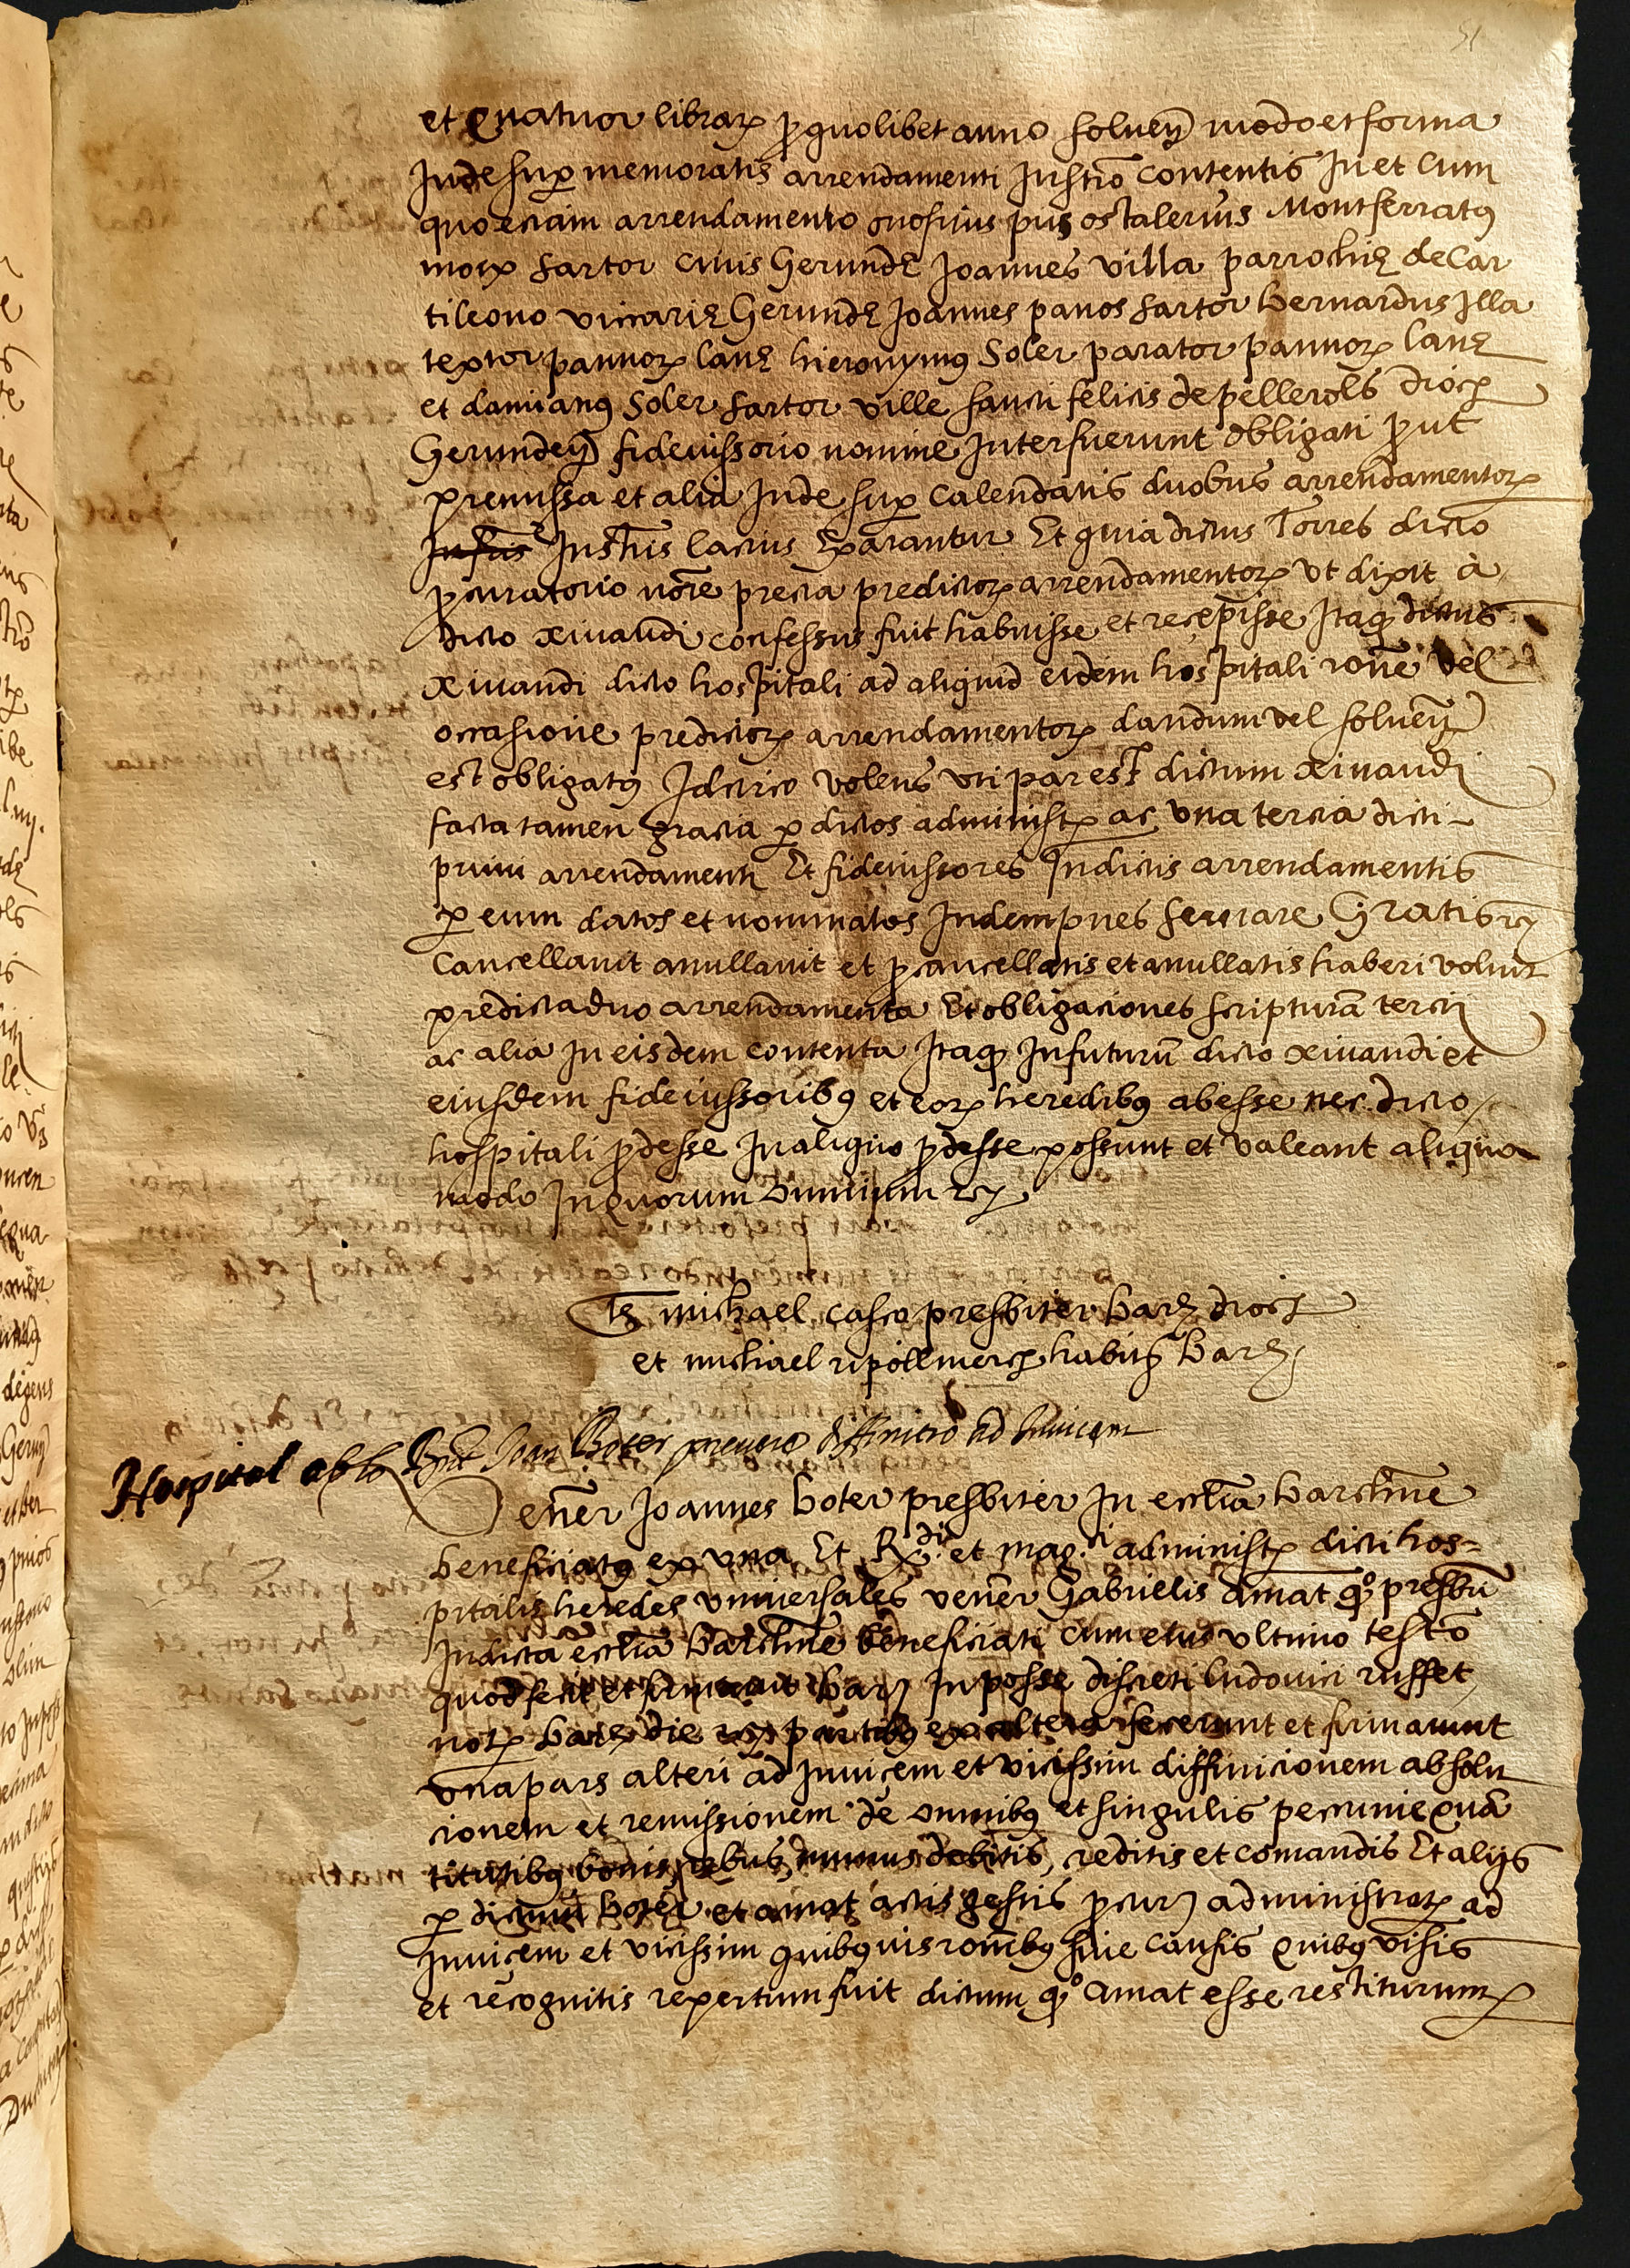 51
et quatuor librarȝ ꝓ quolibet anno soluenȝ modo et forma
Inde sup̲ memoratis arrendamenti Instrō contentis In et cum
quo eciam arrendamento onofrius pus ostalerius Montserratꝰ
sartor ciuis Gerundę Joannes villa parrochię de Car
tileono viccarię Gerundę Joannes panos sartor bernardus Illa
textor pannorȝ lanę hieronymꝰ Soler parator pannorȝ lanę
et damianꝰ Soler sartor ville sancti felicis de pellerols diocȝ
Gerundenȝ fideiussorio nomine Interfuerunt obligati ꝓut
premissa et alia Inde sup̲ calendatis duobus arrendamentorȝ
Instr̄is lacius Exarantur Et quia dictus Torres dicto
ꝓcuratorio noīe precia predictorȝ arrendamentorȝ vt dixit à
dicto xiuandi confessus fuit habuisse et recepisse Itaqȝ dictus
xiuandi dicto hospitali ad aliquid eidem hospitali rōne vel
occasione predictorȝ arrendamentorȝ dandum vel soluenȝ
est obligatꝰ Idcirco volens vti par est dictum xiuandi
facta tamen gracia ꝑ dictos administȝ ac vna tercia dicti
primi arrendamenti Et fideiussores In dictis arrendamentis
ꝑ eum datos et nominatos Indempnes seruare Gratis rȝ
Cancellauit anullauit et ꝓ cancellatis et anullatis haberi voluit
predicta duo arrendamenta Et obligaciones scripturā tercij
ac alia In eisdem contenta Itaqȝ In futurū dicto xiuandi et
eiusdem fideiussoribꝰ et eorȝ heredibꝰ abesse nec dicto
hospitali ꝓdesse In aliquo ꝓdesse possunt et valeant aliquo
modo In quorum omnium rȝ
Tȝ michael casco presbiter barȝ diocȝ
et michael ripoll mercȝ habitȝ barȝ
Hospital ab lo Rnt Joan Boter preuere diffinitio ad Inuicem
Veneȓ Joannes boter presbiter In ecclīa barchn̄e
beneficiatꝰ ex vna Et R.di et mag.ci administȝ dicti hos=
pitalis heredes vniuersales veneȓ Gabrielis amat qo presbrī
In dicta ecclīa barchn̄e beneficiati cum eius vltimo testō
quod fecit et firmauit barȝ In posse discreti ludouici ruffet
notȝ barȝ die rȝ partibꝰ ex altera fecerunt et firmarunt
vna pars alteri ad Inuicem et vicissim diffinicionem absolu
cionem et remissionem de omnibꝰ et singulis pecunie quā
titatibꝰ bonis, rebus, debitis, reditis et comandis Et alijs
ꝑ dictum boter et amat actis gestis ꝓcurȝ administratȝ ad
Inuicem et vicissim quibusuis rōnibꝰ siue causis Quibꝰ visis
et recognitis repertum fuit dictum qo amat esse restiturumȝ